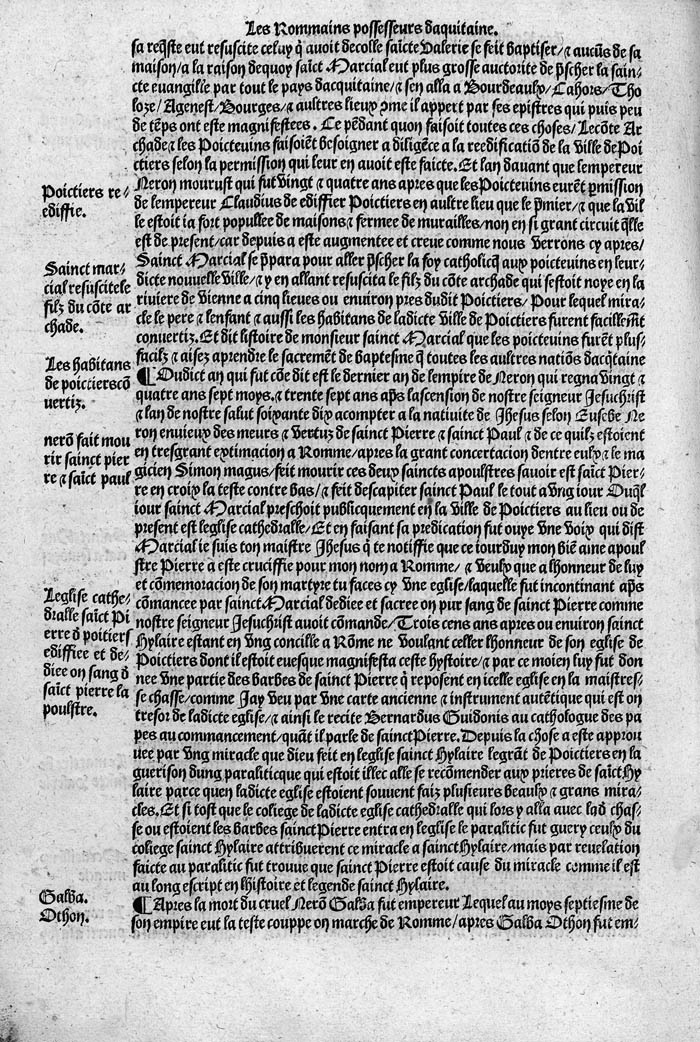 Les Rommains possesseurs daquitaine.
sa reqſte eut resuscite celuy q̄ auoit decolle saīcte Valerie se feit baptiser/⁊ aucūs de sa
maison/a la raison dequoy saīct Marcial eut plus grosse auctorite de p̄scher la sain⸗
cte euangille par tout le pays dacquitaine/⁊ sen alla a Bourdeaulx/Cahors/Tho
loze/Agenest/Bourges/⁊ aultres lieux ꝯme il appert par ses epistres qui puis peu
de tēps ont este magnifestees. Ce pēdant quon faisoit toutes ces choses/Lecōte Ar
chade ⁊ les Poicteuins faisoiēt besoigner a diligēce a la reedificatiō de la ville de Poi
ctiers selon la permission qui leur en auoit este faicte. Et lan dauant que lempereur
Neron mourust qui fut vingt ⁊ quatre ans apres que les Poicteuins eurēt ꝑmission
de lempereur Claudius de ediffier Poictiers en aultre lieu que le p̄mier/⁊ que la vil
le estoit ia fort popullee de maisons ⁊ fermee de murailles/non en si grant circuit q̄lle
est de present/car depuis a este augmentee et creue comme nous verrons cy apres/
Sainct Marcial se p̄para pour aller p̄scher la foy catholicq̄ aux poicteuins en leur⸗
dicte nouuelle ville/⁊ y en allant resuscita le filz du cōte archade qui sestoit noye en la
riuiere de Vienne a cinq lieues ou enuiron pres dudit Poictiers/Pour lequel mira⸗
cle le pere ⁊ lenfant ⁊ aussi les habitans de ladicte ville de Poictiers furent facillemēt
conuertiz. Et dit listoire de monsieur sainct Marcial que les poicteuins furēt plus⸗
facilz ⁊ aisez aprendre le sacremēt de baptesme q̄ toutes les aultres natiōs dacq̄taine
¶ Oudict an qui fut cōe dit est le dernier an de lempire de Neron qui regna vingt ⁊
quatre ans sept moys.⁊ trente sept ans ap̄s lascension de nostre seigneur Jesuchrist
⁊ lan de nostre salut soixante dix acompter a la natiuite de Jhesus selon Eusebe Ne
ron enuieux des meurs ⁊ vertuz de sainct Pierre ⁊ sainct Paul ⁊ de ce quilz estoient
en tresgrant extimacion a Romme/apres la grant concertacion dentre eulx ⁊ le ma
gicien Simon magus/feit mourir ces deux saincts apoulstres sauoir est saīct Pier⸗
re en croix la teste contre bas/⁊ feit descapiter sainct Paul le tout a vng iour Ouq̄l
iour sainct Marcial preschoit publicquement en la ville de Poictiers au lieu ou de
present est leglise cathedralle/Et en faisant sa predication fut ouye vne voix qui dist
Marcial ie suis ton maistre Jhesus q̄ te notiffie que ce iourduy mon biē aime apoul
stre Pierre a este cruciffie pour mon nom a Romme/⁊ veulx que a lhonneur de luy
et cōmemoracion de son martyre tu faces cy vne eglise/laquelle fut incontinant ap̄s
cōmancee par sainct Marcial dediee et sacree on pur sang de sainct Pierre comme
nostre seigneur Jesuchrist auoit cōmande/Trois cens ans apres ou enuiron sainct
Hylaire estant en vng concille a Rōme ne voulant celler lhonneur de son eglise de
Poictiers dont il estoit euesque magnifesta ceste hystoire/⁊ par ce moien luy fut don
nee vne partie des barbes de sainct Pierre q̄ reposent en icelle eglise en la maistres⸗
se chasse/comme Jay veu par vne carte ancienne ⁊ instrument autētique qui est on
tresor de ladicte eglise/⁊ ainsi le recite Bernardus Guidonis au cathologue des pa
pes au commancement/quāt il parle de sainct Pierre. Depuis la chose a este approu
uee par vng miracle que dieu feit en leglise sainct Hylaire legrāt de Poictiers en la
guerison dung paraliticque qui estoit illec alle se recōmender aux prieres de saīct Hy
laire parce quen ladicte eglise estoient souuent faiz plusieurs beaulx ⁊ grans mira⸗
cles. Et si tost que le coliege de ladicte eglise cathedralle qui lors y alla auec lad̄ chas⸗
se ou estoient les barbes sainct Pierre entra en leglise le paralitic fut guery ceulx du
coliege sainct Hylaire attribuerent ce miracle a sainct Hylaire/mais par reuelation
faicte au paralitic fut trouue que sainct Pierre estoit cause du miracle comme il est
au long escript en lhistoire et legende sainct Hylaire.
¶ Apres la mort du cruel Nerō Galba fut empereur Lequel au moys septiesme de
son empire eut la teste couppe on marche de Romme/apres Galba Othon fut em⸗
Poictiers re⸗
ediffie.
Sainct mar⸗
cial resuscite le
filz du cōte ar
chade.
Les habitans
de poictiers cō
uertiz.
nerō fait mou
rir sainct pier
re ⁊ saīct paul
Leglise cathe⸗
dralle saīct Pi
erre d̄ poitiers
ediffiee et de⸗
diee on sang d̄
saīct pierre la
poulstre.
Galba.
Othon.